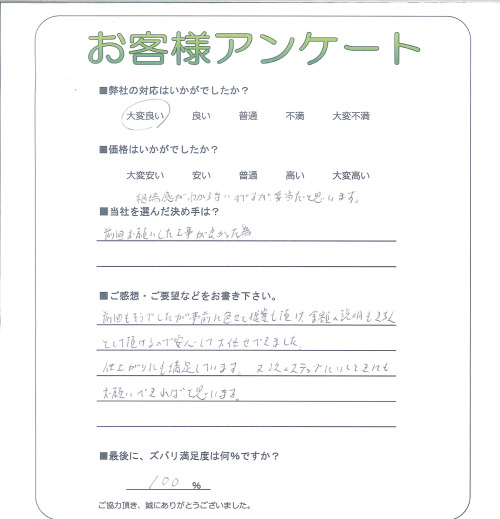 お客様アンケート
■弊社の対応はいかがでしたか？
大変良い 良い 普通 不満 大変不満
■価格はいかがでしたか？
大変安い 安い 普通 高い 大変高い
相場感がわからないですが、妥当だと思います。
■当社を選んだ決め手は？
前回お願いした工事が良かった為
■ご感想・ご要望などをお書き下さい。
前回もそうでしたが事前に色々と提案も頂け、金額の説明もきちん
として頂けるので安心してお任せできました。
仕上がりにも満足しています。又次のステップにいくときにも
お願いできればと思います。
■最後に、ズバリ満足度は何％ですか？
100 ％
ご協力頂き、誠にありがとうございました。